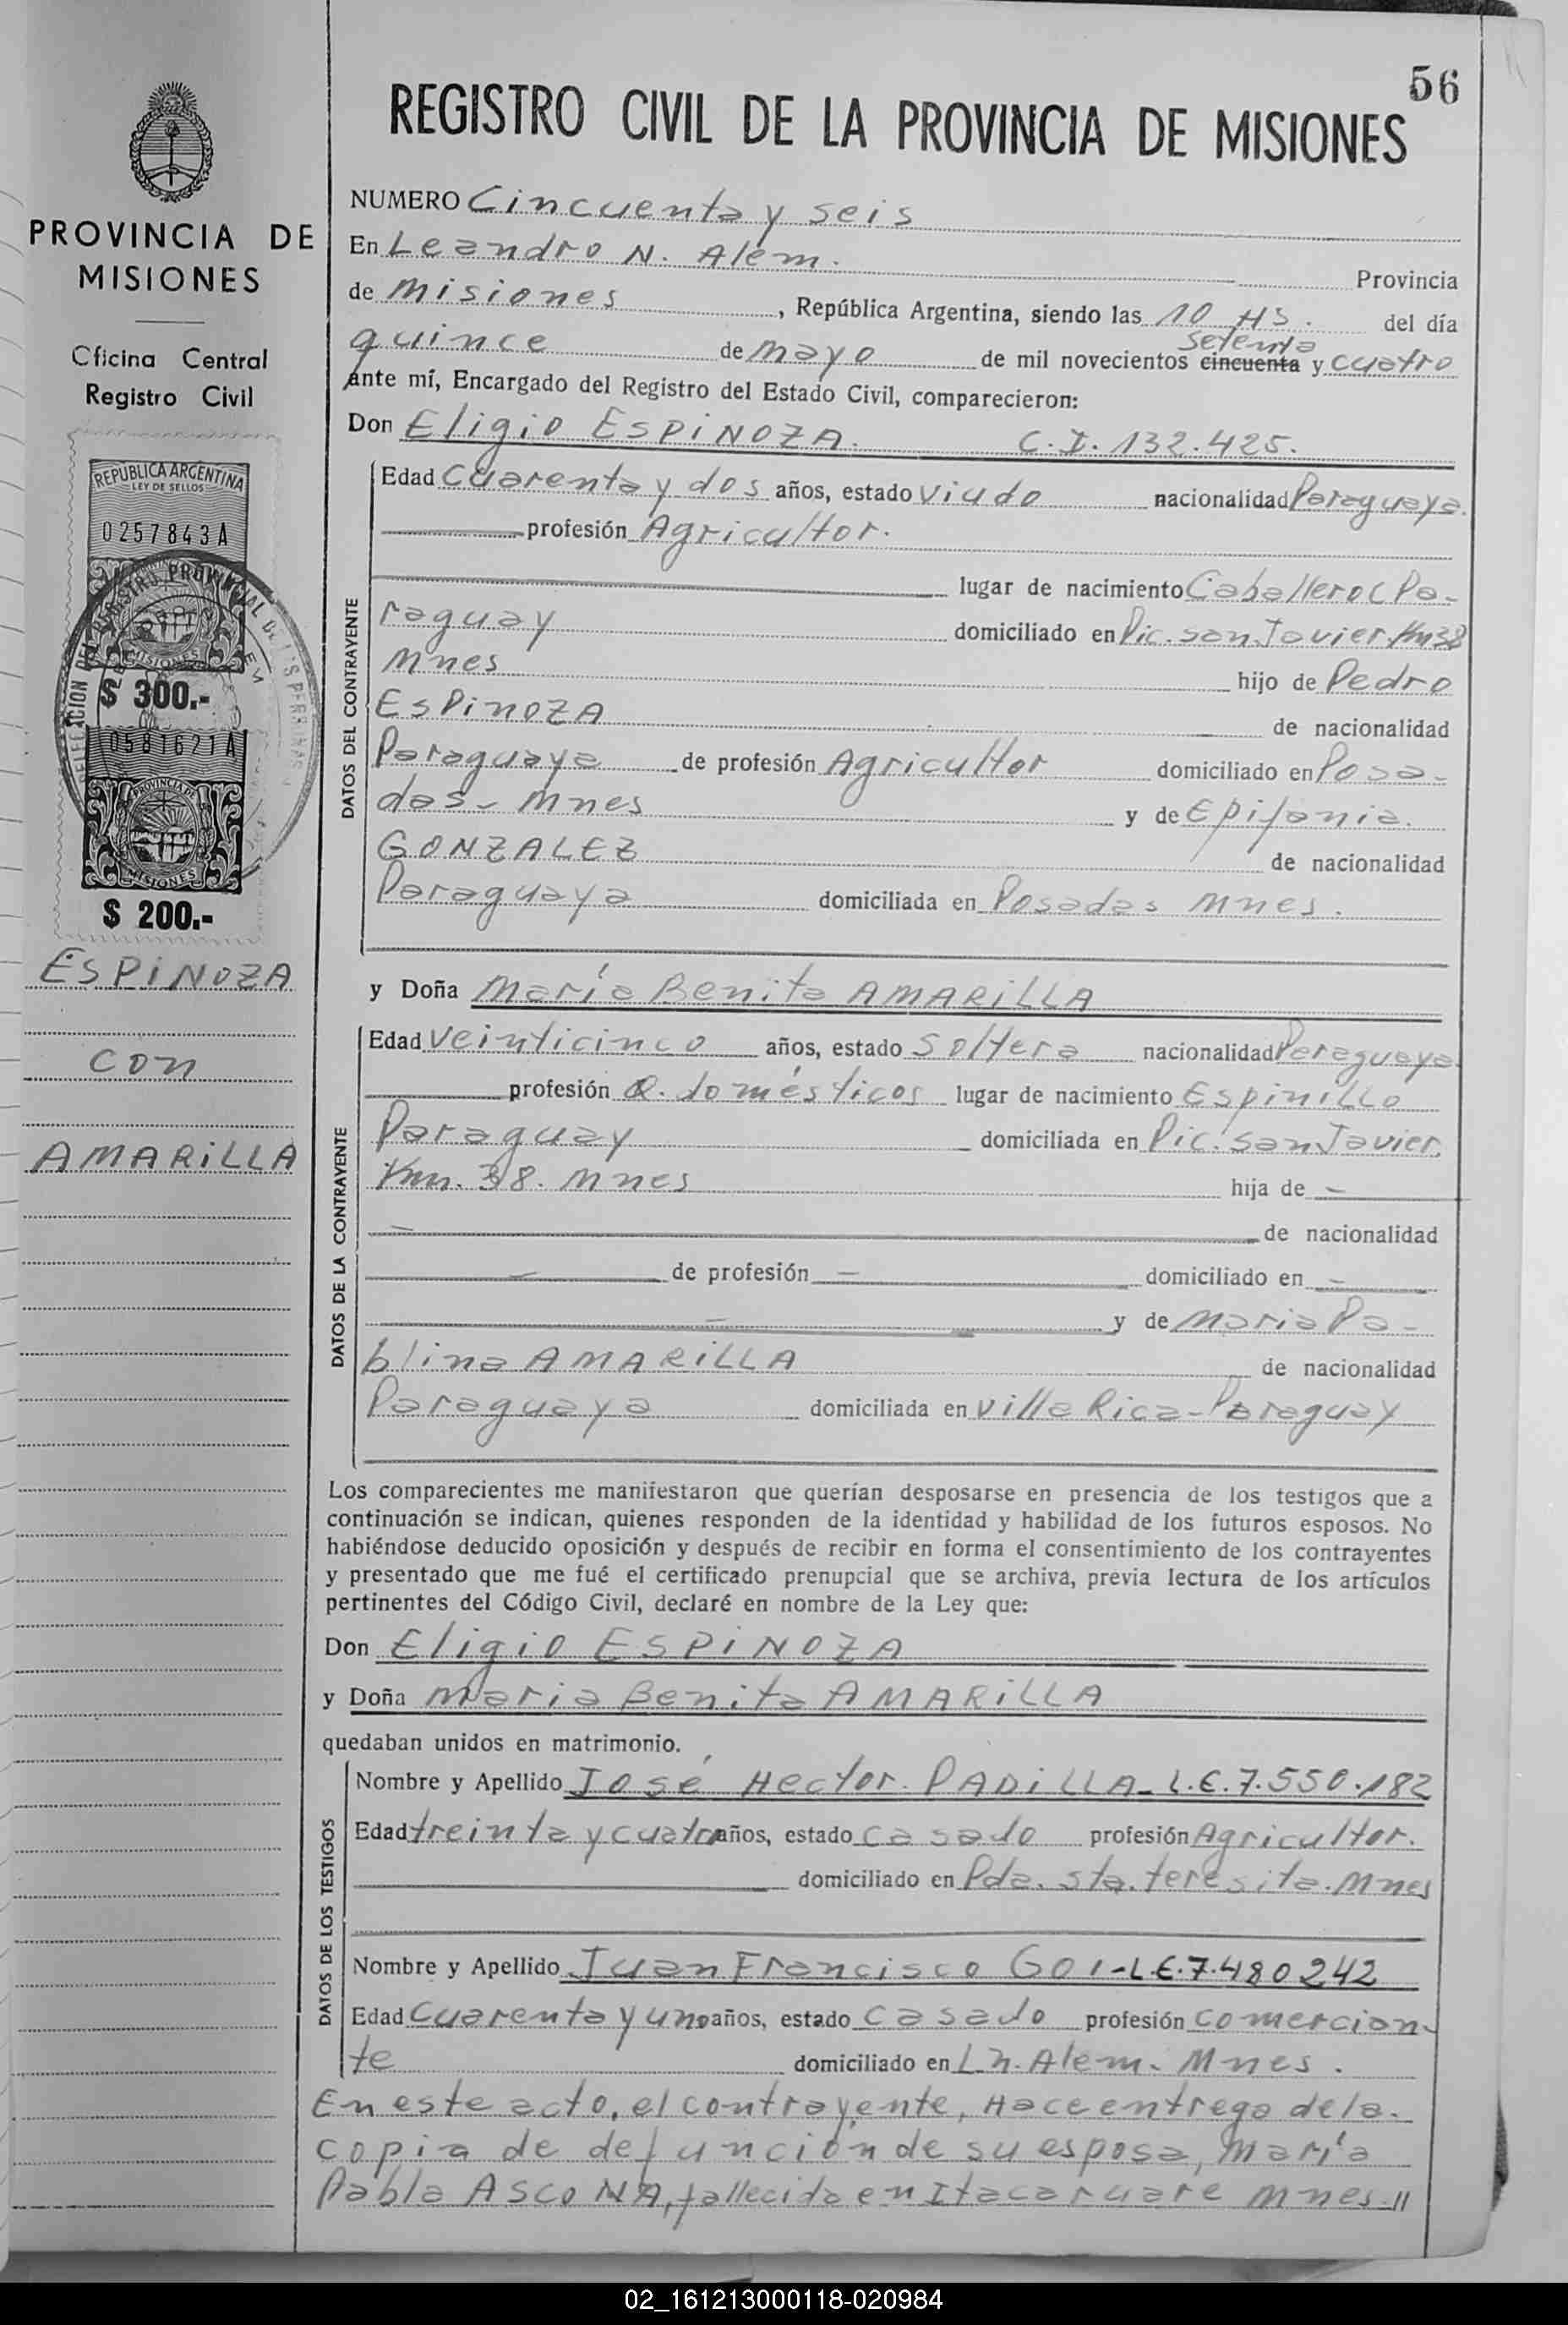 56
REGISTRO CIVIL DE LA PROVINCIA DE MISIONES
PROVINCIA DE
MISIONES
Oficina Central
Registro Civil
REPUBLICA ARGENTINA
LEY DE SELLOS
0257843A
MISIONES
$ 300.-
0581621A
PROVINCIA DE
MISIONES
$ 200.-
ESPINOZA
con
AMARILLA
NUMERO Cincuenta y seis
En Leandro N. Alem. Provincia
de Misiones, República Argentina, siendo las 10 HS. del día
setenta
quince de mayo de mil novecientos cincuenta y cuatro
ante mí, Encargado del Registro del Estado Civil, comparecieron:
Don Eligio ESPINOZA. C.I. 132.425.
DATOS DEL CONTRAYENTE
Edad Cuarenta y dos años, estado viudo nacionalidad Paraguaya.
profesión Agricultor.
lugar de nacimiento Caballero (Pa-
raguay domiciliado en Pic. San Javier Km 38
Mnes hijo de Pedro
ESPINOZA de nacionalidad
Paraguaya de profesión Agricultor domiciliado en Posa-
das - Mnes y de Epifania.
GONZALEZ de nacionalidad
Paraguaya domiciliada en Posadas Mnes.
y Doña María Benita AMARILLA
DATOS DE LA CONTRAYENTE
Edad veinticinco años, estado soltera nacionalidad Paraguaya.
profesión Q. domésticos lugar de nacimiento Espinillo
Paraguay domiciliada en Pic. San Javier.
Km. 38. Mnes hija de -
- de nacionalidad
- de profesión - domiciliado en -
- y de Maria Pa-
blina AMARILLA de nacionalidad
Paraguaya domiciliada en Villa Rica - Paraguay
Los comparecientes me manifestaron que querían desposarse en presencia de los testigos que a
continuación se indican, quienes responden de la identidad y habilidad de los futuros esposos. No
habiéndose deducido oposición y después de recibir en forma el consentimiento de los contrayentes
y presentado que me fué el certificado prenupcial que se archiva, previa lectura de los artículos
pertinentes del Código Civil, declaré en nombre de la Ley que:
Don Eligio ESPINOZA
y Doña Maria Benita AMARILLA
quedaban unidos en matrimonio.
DATOS DE LOS TESTIGOS
Nombre y Apellido José Hector. PADILLA - L.E. 7.550.182
Edad treinta y cuatro años, estado casado profesión Agricultor.
domiciliado en Pda. Sta. teresita. Mnes
Nombre y Apellido Juan Francisco GOI - L.E. 7.480242
Edad Cuarenta y uno años, estado casado profesión comercian-
te domiciliado en L.N. Alem. Mnes.
En este acto, el contrayente, Hace entrega de la.
copia de defunción de su esposa, María
Pabla ASCONA, fallecida en Itacaruare Mnes. //
02_161213000118-020984